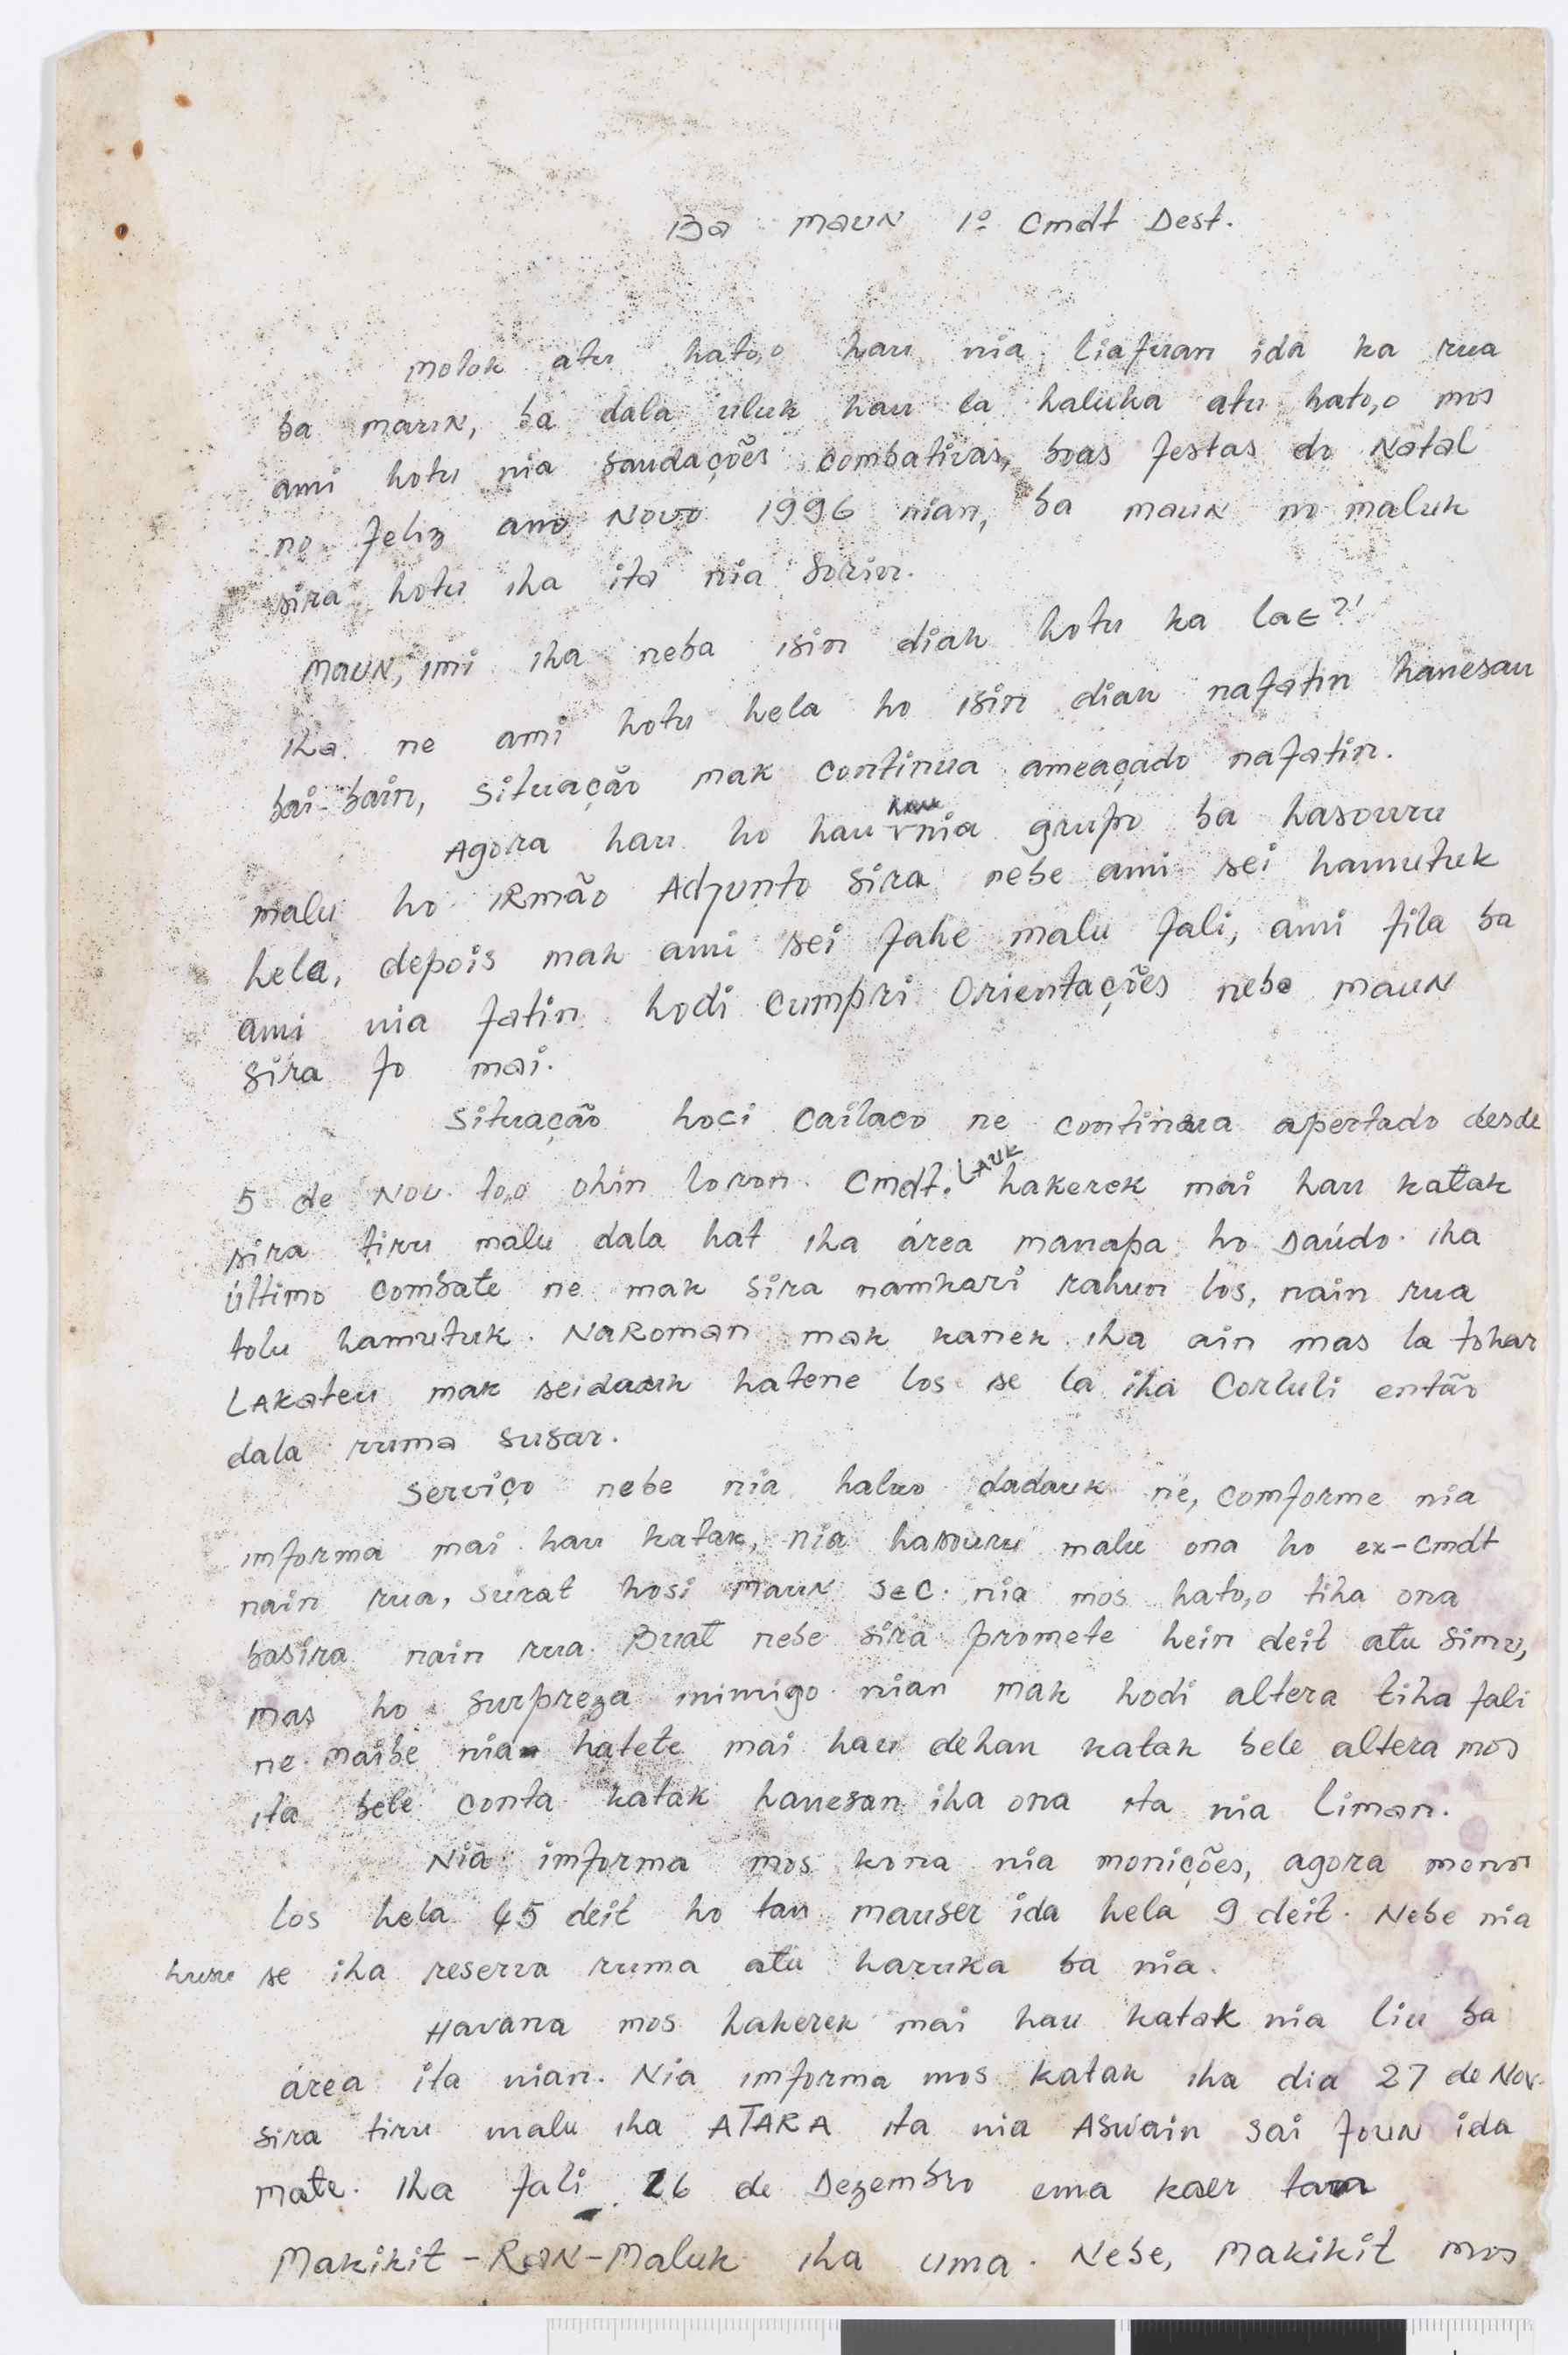 Ba maun 1º Cmdt Dest.
Molok atu hato,o hau nia liafuan ida ka rua
ba maun, ba dala uluk hau la haluha atu hato,o mos
ami hotu nia saudações combativas, boas festas do Natal
no feliz ano Novo 1996 nian, ba maun no maluk
sira hotu iha ita nia sorin.
Maun, imi iha neba isin diak hotu ka lae?!
Iha ne ami hotu hela ho isin diak nafatin hanesan
bai-bain, situação mak continua ameaçado nafatin.
Agora hau ho hau hau nia grupo ba hasouru
malu ho irmão Adjunto sira nebe ami sei hamutuk
hela, depois mak ami sei fahe malu fali, ami fila ba
ami nia fatin hodi cumpri Orientações nebe maun
sira fo mai.
Situação hoci Cailaco ne continua apertado desde
5 de Nov. to,o ohin loron. Cmdt. Lauk hakerek mai hau katak
sira tiru malu dala hat iha área manapa ho Daúdo. Iha
último combate ne mak sira namkari rahun los, nain rua
tolu hamutuk. Naroman mak kanek iha ain mas la tohar
Lakateu mak seidauk hatene los se la iha Corluli então
dala ruma susar.
Serviço nebe nia halao dadauk ne, comforme nia
imforma mai hau katak, nia hasouru malu ona ho ex-Cmdt
nain rua, surat hosi maun Sec. nia mos hato,o tiha ona
basira nain rua. Buat nebe sira promete hein deit atu simu,
mas ho surpreza inimigo nian mak hodi altera tiha fali
ne. Maibe nia hatete mai hau dehan katak bele altera mos
ita bele conta katak hanesan iha ona ita nia liman.
Nia imforma mos kona nia monições, agora menos
los hela 45 deit ho tan mauser ida hela 9 deit. Nebe nia
husu se iha reserva ruma atu haruka ba nia.
Havana mos hakerek mai hau katak nia liu ba
área ita nian. Nia imforma mos katak iha dia 27 de Nov.
sira tiru malu iha ATARA ita nia Aswain sai foun ida
mate. Iha fali 26 de Dezembro ema kaer tan
Makikit-Ran-Maluk iha uma. Nebe, Makikit mos